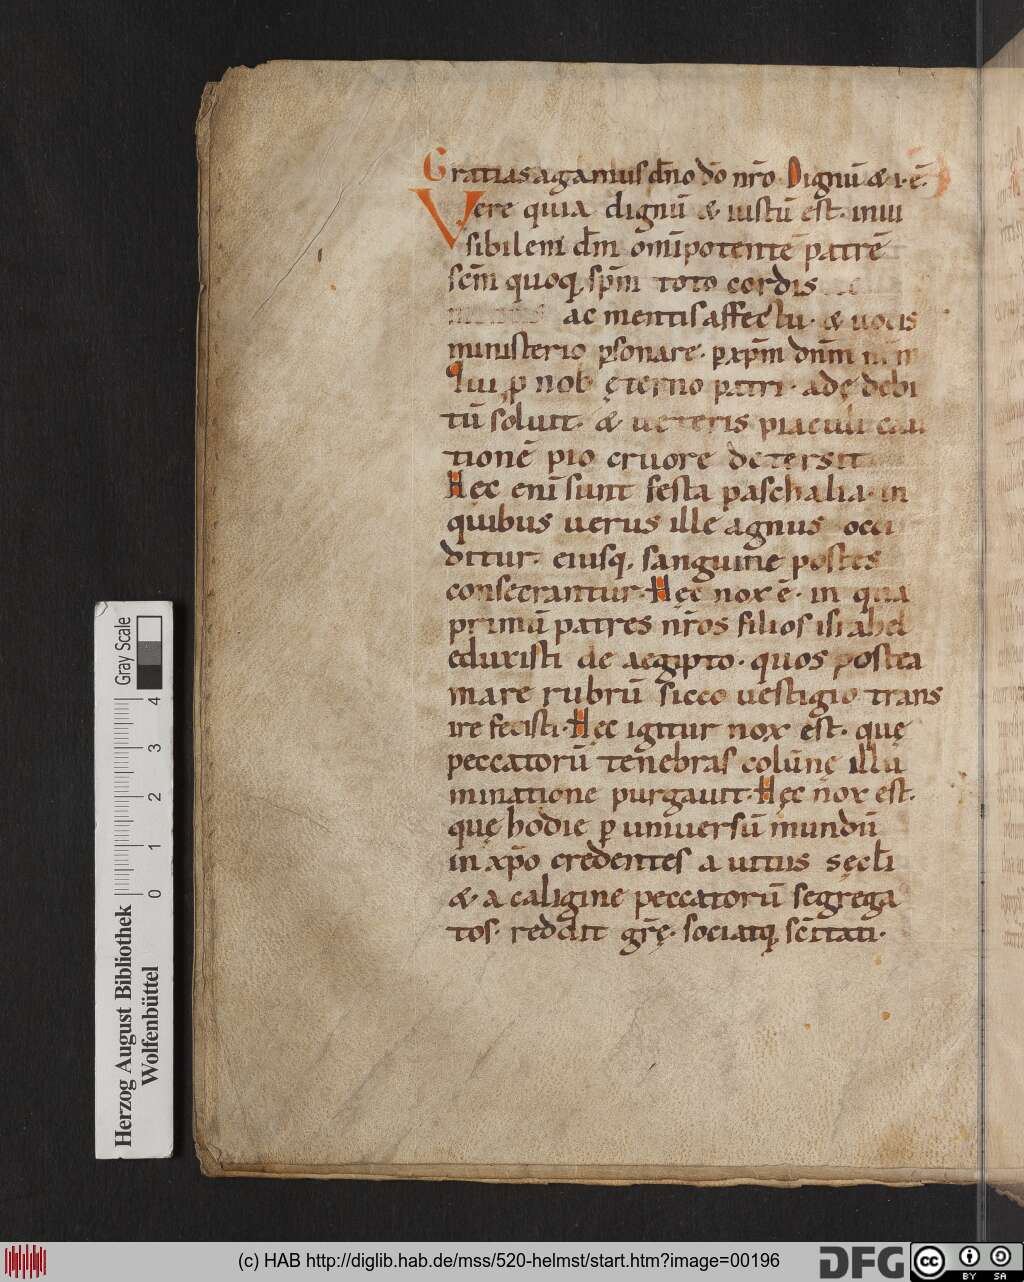 Gratias agamus dn̄o dō nr̄o Dignū & i· ē·
Vere quia dignū & iustū est· inui
sibilem dm̄ om̄ipotentē patrē
sc̄m quoq; sp̄m toto cordis
ac mentis affectu· & uocis
ministerio p̲sonare· p̲ xp̄m dnm̄ nr̄m
Qui p̲ nob ęterno patri· adę debi
tū soluit· & ueteris piaculi cau
tionē pio cruore detersit
Hec eni̅ sunt festa paschalia· in
quibus uerus ille agnus occi
ditur· eiusq; sanguine postes
consecrantur· Hęc nox ē· in qua
primū patres nr̄os filios israhel
eduxisti de aegipto· quos postea
mare rubrū sicco uestigio trans
ire fecisti· Hęc igitur nox est· quę
peccatorū tenebras colūnę illu
minatione purgauit· Hęc nox est·
quę hodie p̲ uniuersū mundū
in xp̄o credentes a uitiis sęcl̄i
& a caligine peccatorū segrega
tos· reddit gr̄ę· sociatq; sc̄itati·
Gray Scale
4
3
2
1
0
Herzog August Bibliothek
Wolfenbüttel
(c) HAB http://diglib.hab.de/mss/520-helmst/start.htm?image=00196
DFG
cc BY SA